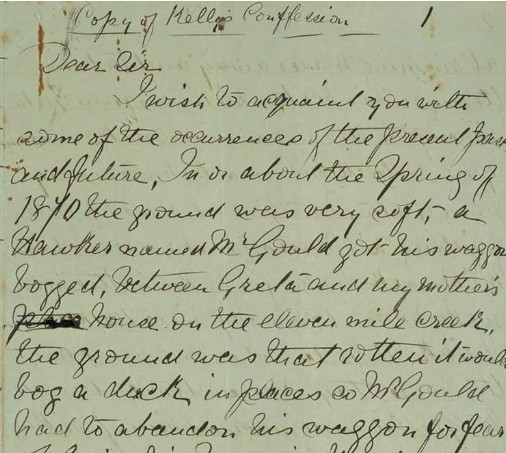 Copy of Kellys Confession 1
Dear Sir
I wish to acquaint you with
some of the occurrences of the present past
and future, In or about the Spring of
1870 the ground was very soft, a
Hawker named Mr Gould got his waggon
bogged, between Greta and my mother's
house on the eleven mile creek,
the ground was that rotten it would
bog a duck in places so Mr Gould
had to abandon his waggon for fear